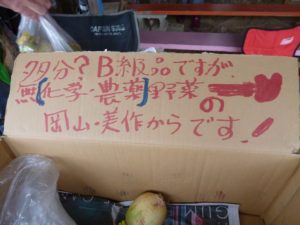 多分?B級品ですが、
無[化学・農薬]野菜の
岡山・美作からです!